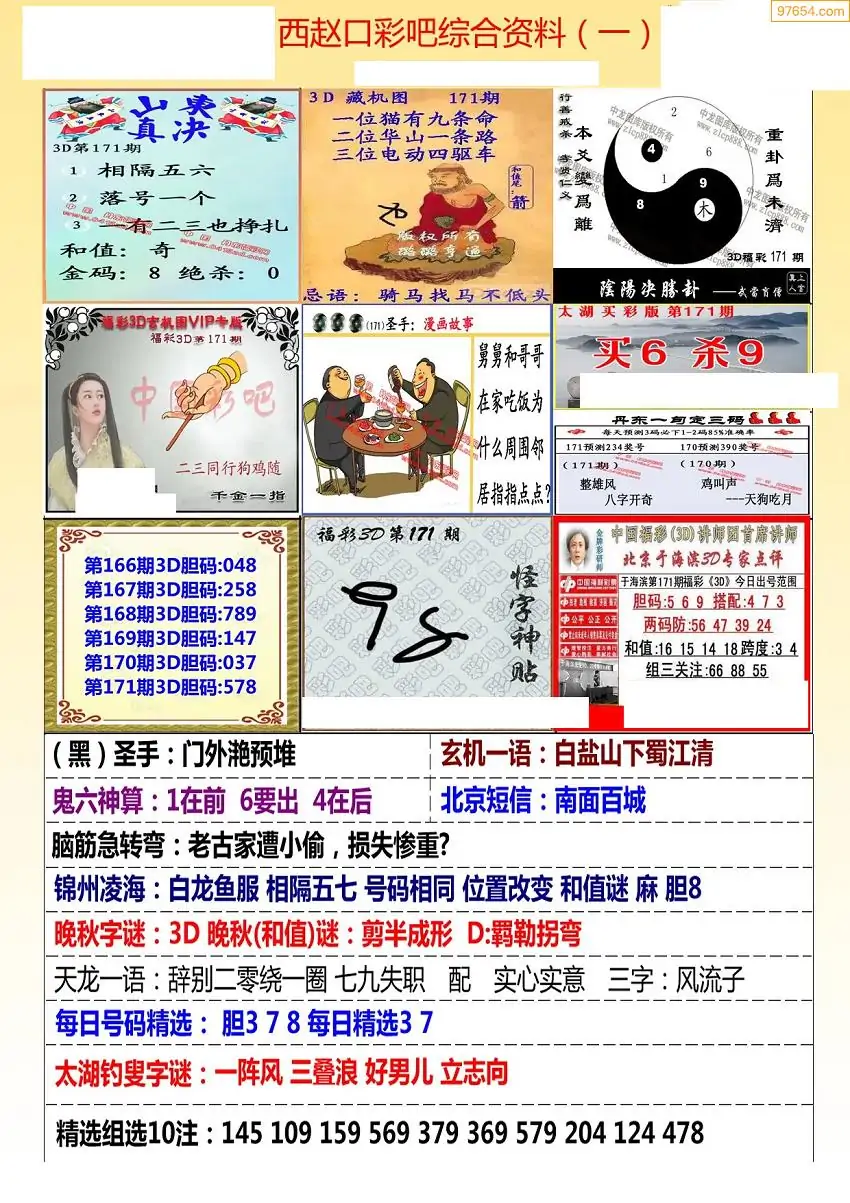 97654.com
西赵口彩吧综合资料（一）
山夷
真决
3D第171期
1 相隔五六
2 落号一个
3 一有二三也挣扎
和值: 奇
金码: 8 绝杀: 0
3D 藏机图 171期
一位猫有九条命
二位华山一条路
三位电动四驱车
和值尾:箭
版权所有
忌语: 骑马找马不低头
行善戒杀 孝贤仁义
本爻變爲離
重卦爲未濟
2
4
6
1
9
8
木
中龙图库版权所有
www.zlcp888.com
3D福彩 171 期
陰陽決勝卦 ——武當肓僧
真上人官
福彩3D玄机图VIP专版
福彩3D第171期
中国彩吧
二三同行狗鸡随
千金一指
(171)圣手: 漫画故事
舅舅和哥哥
在家吃饭为
什么周围邻
居指指点点?
太湖买彩版 第171期
买6 杀9
丹东一句定三码
每天预测3码必下1-2码85%准确率
171预测234奖号 170预测390奖号
(171期) (170期)
整雄风 鸡叫声
八字开奇 ---天狗吃月
第166期3D胆码:048
第167期3D胆码:258
第168期3D胆码:789
第169期3D胆码:147
第170期3D胆码:037
第171期3D胆码:578
福彩3D第171 期
怪字神贴
金牌彩研师
中国福彩(3D)讲师团首席讲师
北京于海滨3D专家点评
中国福利彩票
于海滨第171期福彩《3D》今日出号范围
胆码:5 6 9 搭配:4 7 3
公平 公正 公开
两码防:56 47 39 24
和值:16 15 14 18跨度:3 4
组三关注:66 88 55
(黑)圣手:门外滟预堆
玄机一语:白盐山下蜀江清
鬼六神算:1在前 6要出 4在后
北京短信:南面百城
脑筋急转弯:老古家遭小偷,损失惨重?
锦州凌海:白龙鱼服 相隔五七 号码相同 位置改变 和值谜 麻 胆8
晚秋字谜:3D 晚秋(和值)谜:剪半成形 D:羁勒拐弯
天龙一语:辞别二零绕一圈 七九失职 配 实心实意 三字:风流子
每日号码精选: 胆3 7 8 每日精选3 7
太湖钓叟字谜:一阵风 三叠浪 好男儿 立志向
精选组选10注:145 109 159 569 379 369 579 204 124 478